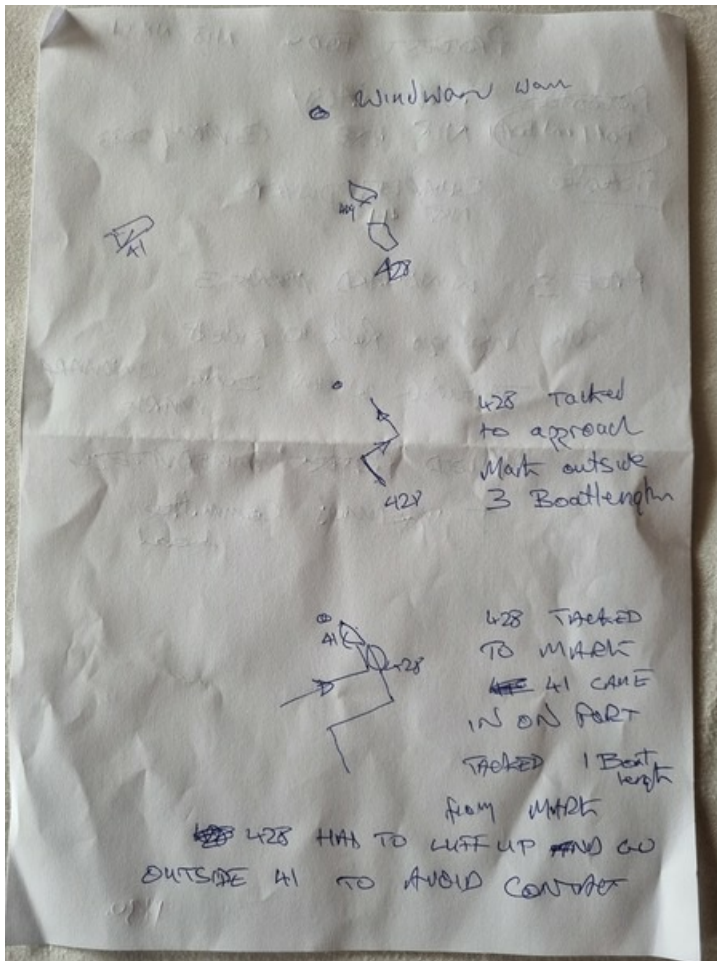 WINDWARD
41
428
428 Tacked
to approach
Mark outside
3 Boatlength
428
428 TACKED
TO MARK
41 CAME
IN ON PORT
TACKED 1 Boat
length
from MARK
41
428
428 HAD TO LUFF UP AND GO
OUTSIDE 41 TO AVOID CONTACT